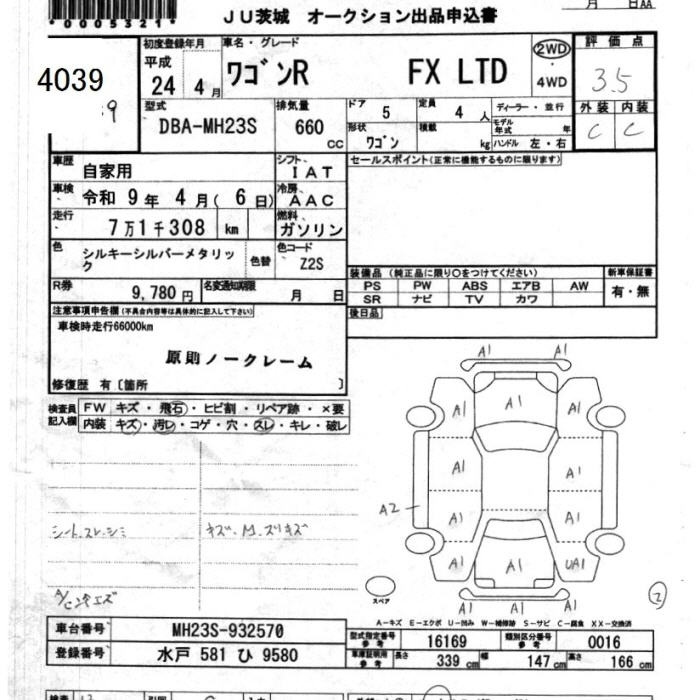 *0005321*
JU茨城 オークション出品申込書
月 日AA
4039
9
初度登録年月 車名・グレード 2WD 評価点
平成
24 4月 ワゴンR FX LTD 4WD 3.5
型式 排気量 ドア 5 定員 4人 ディーラー・並行 外装 内装
DBA-MH23S 660cc 形状 ワゴン 積載 kg モデル年式 年 ハンドル 左・右 C C
車歴 自家用 シフト IAT セールスポイント(正常に機能するものに限ります)
車検 令和 9年 4月(6日) 冷房 AAC
走行 7万1千308 km 燃料 ガソリン
色 シルキーシルバーメタリック 色替 色コード Z2S
装備品 (純正品に限り○をつけてください) 新車保証書
R券 9,780円 名変通知期限 月 日
PS PW ABS エアB AW 有・無
SR ナビ TV カワ
注意事項申告欄(不具合内容等は具体的に記入して下さい) 後日品
車検時走行66000km
原則ノークレーム
修復歴 有〔箇所 〕
検査員記入欄 FW キズ・飛石・ヒビ割・リペア跡・×要
内装 キズ・汚レ・コゲ・穴・スレ・キレ・破レ
A1 A1
A1 A1 A1
A1 A1
A2 A1 A1
A1 A1 UA1
A1 A1 A1
シート.スレ.シミ キズ.M.ズリキズ
スペア
2
A-キズ E-エクボ U-凹み W-補修跡 S-サビ C-腐食 XX-交換済
車台番号 MH23S-932570 型式指定番号 参考 16169 類別区分番号 参考 0016
登録番号 水戸 581 ひ 9580 車庫証明用 参考 長さ 339cm 幅 147cm 高さ 166cm